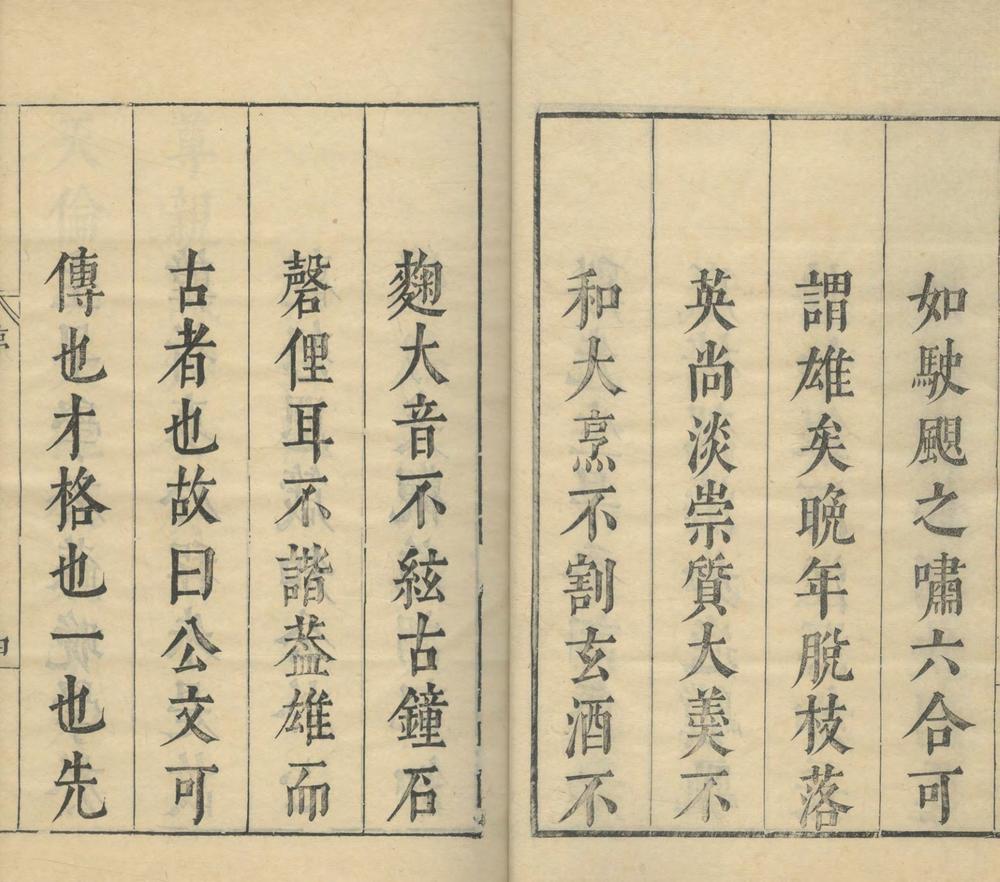 如駛颶之嘯六合可
謂雄矣晩年脫枝落
英尚淡崇質大羹不
和大烹不割玄酒不
麴大音不絃古鐘石
磬俚耳不諧葢雄而
古者也故曰公文可
傳也才格也一也先
序